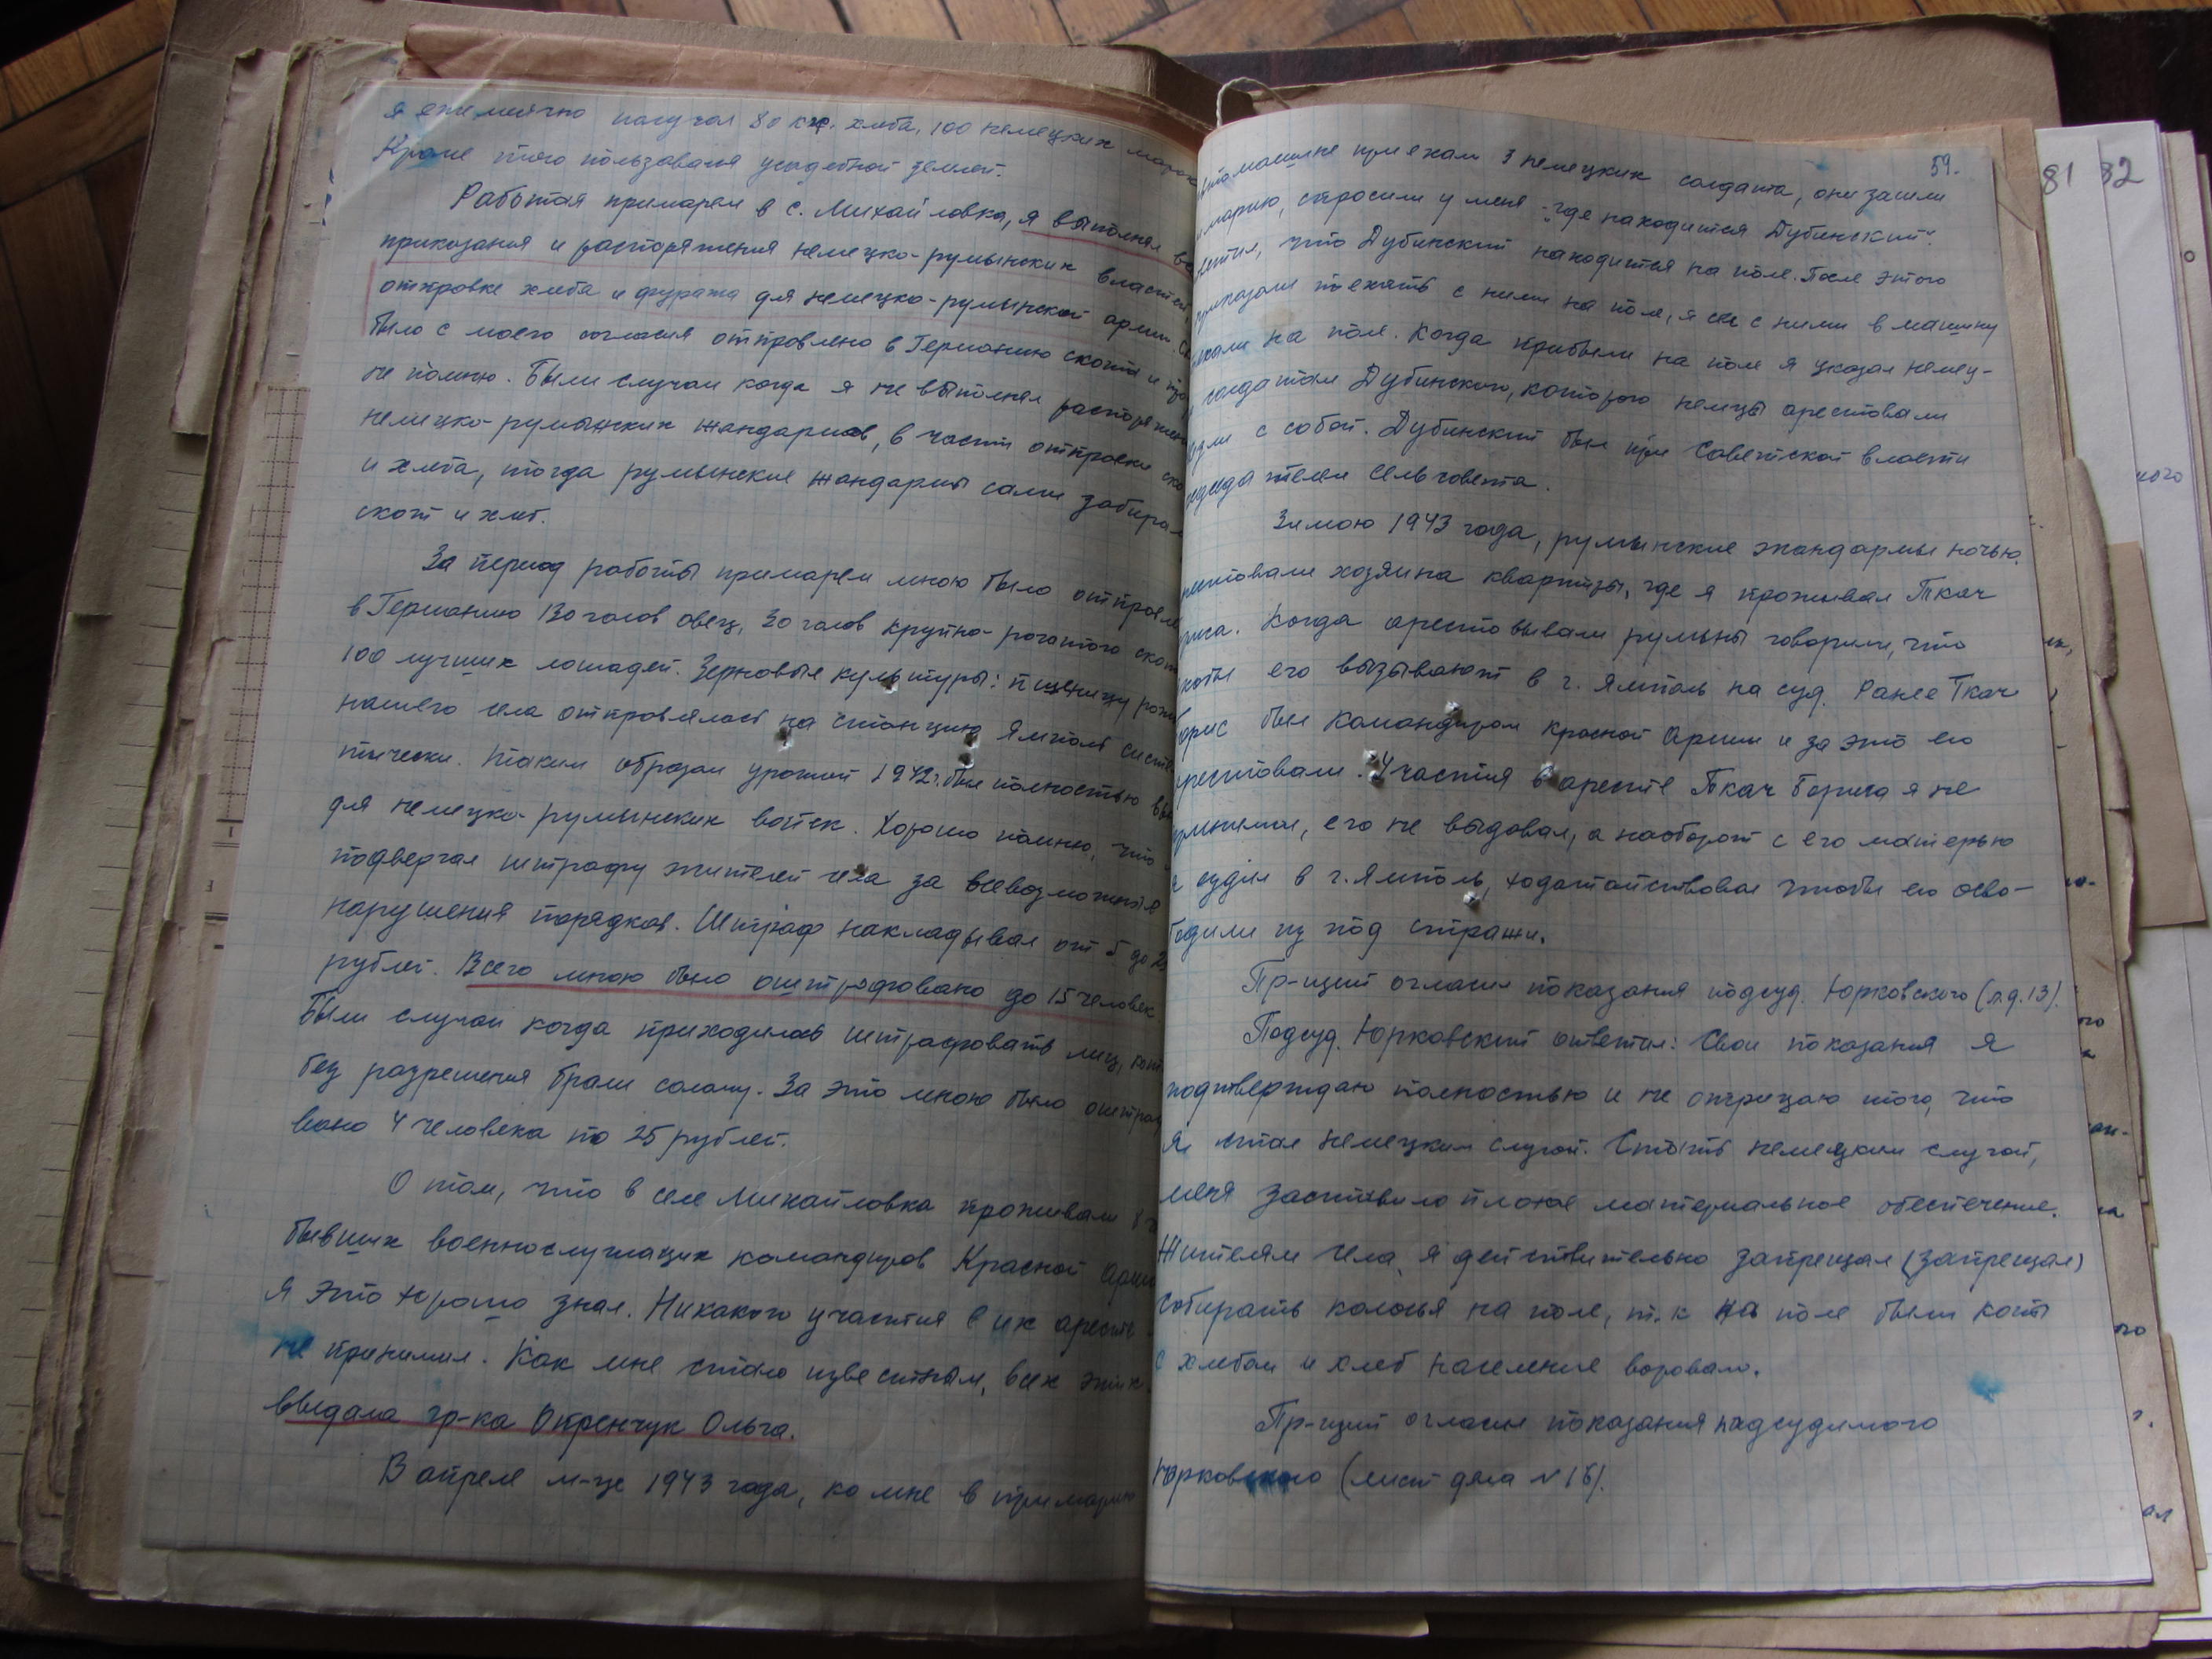 я ежемесячно получал 80 кгр. хлеба, 100 немецких марок
Кроме этого пользовался усадебной землей.
Работая примарем в с. Михайловка, я выполнял
приказания и распоряжения немецко-румынских властей,
отправке хлеба и фуража для немецко-румынской армии.
было с моего согласия отправлено в Германию скота и
не помню. Были случаи когда я не выполнял
немецко-румынских жандармов, в части отправки
и хлеба, тогда румынские жандармы сами забирали
скот и хлеб.
За период работы примарем мною было
в Германию 130 голов овец, 30 голов крупно-рогатого
100 лучших лошадей. Зерновые культуры: пшеницу
нашего села отправлялось на станцию Ямполь
тически. Таким образом урожай 1942 г. был полностью
для немецко-румынских войск. Хорошо помню, что
подвергал штрафу жителей села за всевозможные
нарушения порядков. Штраф накладывал от 5 до
рублей. Всего мною было оштрафовано до 15 человек.
Были случаи когда приходилось штрафовать лиц,
без разрешения брали солому. За это мною было
вано 4 человека по 25 рублей.
О том, что в селе Михайловка проживали 8
бывших военнослужащих командиров Красной
я это хорошо знал. Никакого участия в их аресте
не принимал. Как мне стало известным, всех этих
выдала гр-ка Окренчук Ольга.
В апреле м-це 1943 года, ко мне в примарию
59.
81 82
машине приехали 3 немецких солдата, они зашли
спросили у меня "где находится Дубинский".
что Дубинский находится на поле. После этого
приказали поехать с ними на поле, я сел с ними в машину
на поле. Когда прибыли на поле я указал немец-
солдатам Дубинского, которого немцы арестовали
с собой. Дубинский был при Советской власти
сельсовета.
Зимою 1943 года, румынские жандармы ночью
хозяина квартиры, где я проживал Ткач
Когда арестовывали румыны говорили, что
его вызывают в г. Ямполь на суд. Ранее Ткач
был командиром Красной Армии и за это его
арестовали. Участия в аресте Ткач Бориса я не
его не выдавал, а наоборот с его матерью
ездил в г. Ямполь, ходатайствовал чтобы его осво-
бодили из под стражи.
Пр-щий огласил показания подсуд. Юрковского (л.д. 13).
Подсуд. Юрковский ответил: Свои показания я
подтверждаю полностью и не отрицаю того, что
я стал немецким слугой. Стать немецким слугой,
меня заставило плохое материальное обеспечение.
Жителям села я действительно запрещал (запрещал)
собирать колосья на поле, т.к на поле были копы
с хлебом и хлеб население воровало.
Пр-щий огласил показания подсудимого
Юрковского (лист дела № 16).